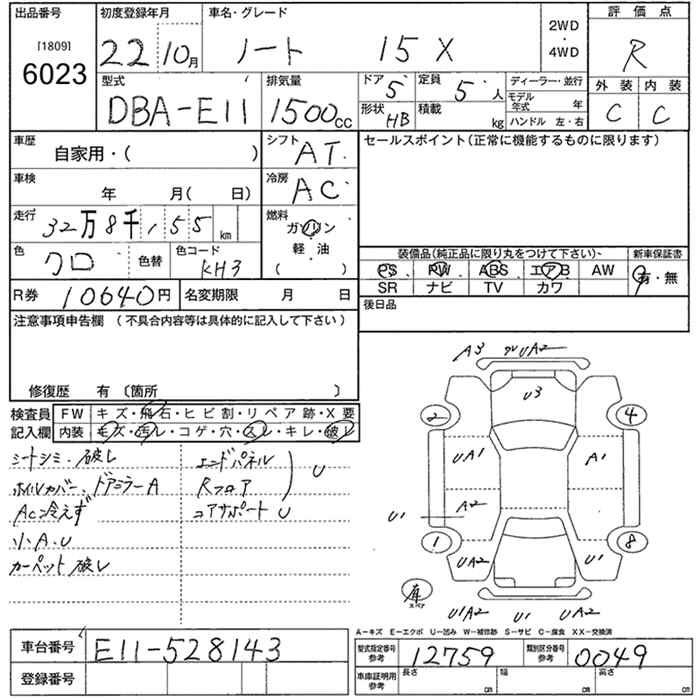 出品番号
[1809]
6023
初度登録年月
22 10月
車名・グレード
ノート 15X
2WD
・
4WD
評価点
R
外装 内装
C C
型式
DBA-E11
排気量
1500cc
ドア
5
定員
5人
形状
HB
積載
kg
ディーラー・並行
モデル年式 年
ハンドル 左・右
車歴
自家用・( )
シフト
AT
車検
年 月( 日)
冷房
AC
走行
32万8千,155 km
燃料
ガソリン
軽・油
( )
色
クロ
色替
色コード
KH3
R券
10640円
名変期限 月 日
セールスポイント(正常に機能するものに限ります)
装備品(純正品に限り丸をつけて下さい)
PS PW ABS エアB AW
SR ナビ TV カワ
新車保証書
有・無
後日品
注意事項申告欄 (不具合内容等は具体的に記入して下さい)
修復歴 有〔箇所 〕
検査員
記入欄
FW キズ・飛石・ヒビ割・リペア跡・X要
内装 キズ・汚レ・コゲ・穴・スレ・キレ・破レ
シートシミ・破レ
ホイルカバー、ドアミラーA
AC冷えず
小A.U
カーペット破レ
エンドパネル
Rフロア
U
コアサポート U
A3 グリルUA2
U3
2 4
UA1 A1
A2
U1
1 8
UA2 U1
スペア
U1A2 U1 UA2
A-キズ E-エクボ U-凹み W-補修跡 S-サビ C-腐食 XX-交換済
車台番号
E11-528143
登録番号
型式指定番号
参考
12759
類別区分番号
参考
0049
車庫証明用
参考
長さ cm
幅 cm
高さ cm